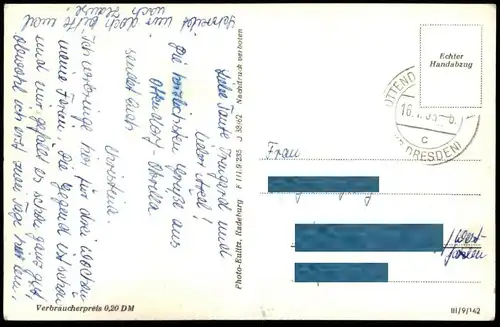 Schreibt mir doch bitte mal
nach Hause!
Liebe Tante Irmgard und
lieber Axel!
Die herzlichsten Grüße aus
Ottendorf-Okrilla
sendet Euch
Christina.
Ich verbringe hier für drei Wochen
meine Ferien. Die Gegend ist schön
und mir gefällt es schon ganz gut,
obwohl ich erst zwei Tage hier bin.
Verbraucherpreis 0,20 DM
Photo-Eulitz, Radeburg F 111.9.235 J 38/62 Nachdruck verboten
Echter
Handabzug
OTTEND
DRESDEN)
c
Frau
III/9/142